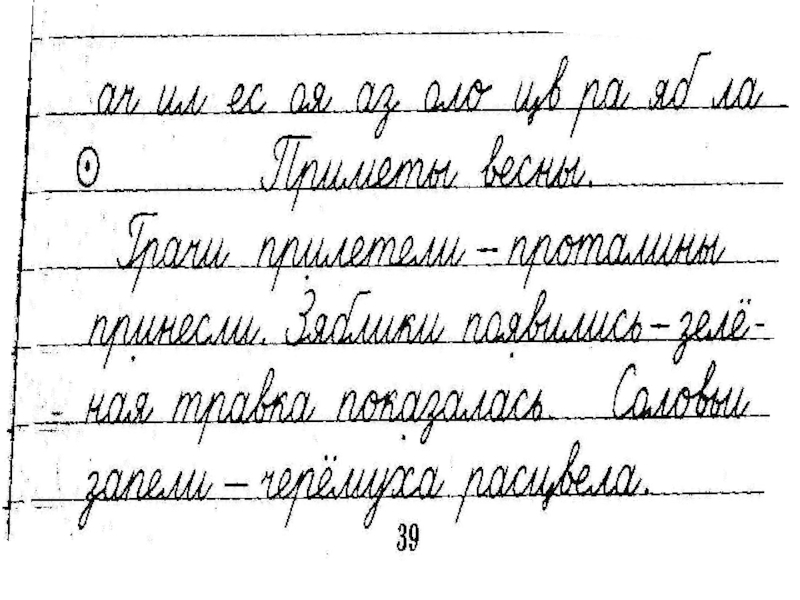 ач ил ес оя аз оло цв ра яб ла
Приметы весны.
Грачи прилетели – проталины
принесли. Зяблики появились – зелё-
ная травка показалась. Соловьи
запели – черёмуха расцвела.
39